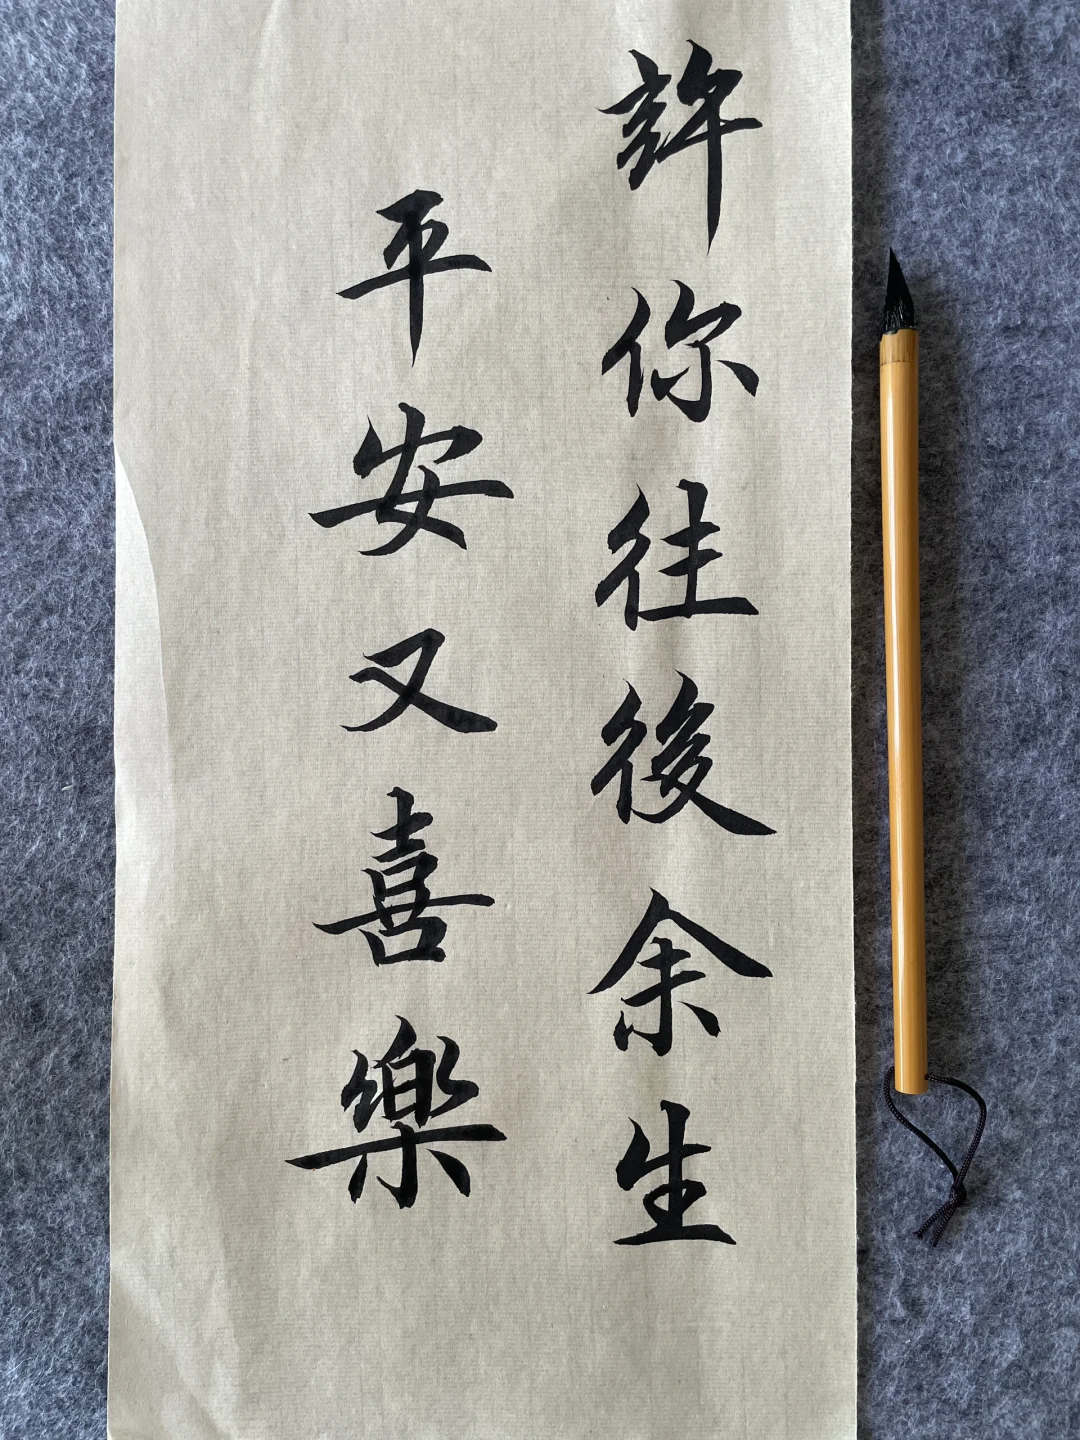 許你往後余生
平安又喜樂